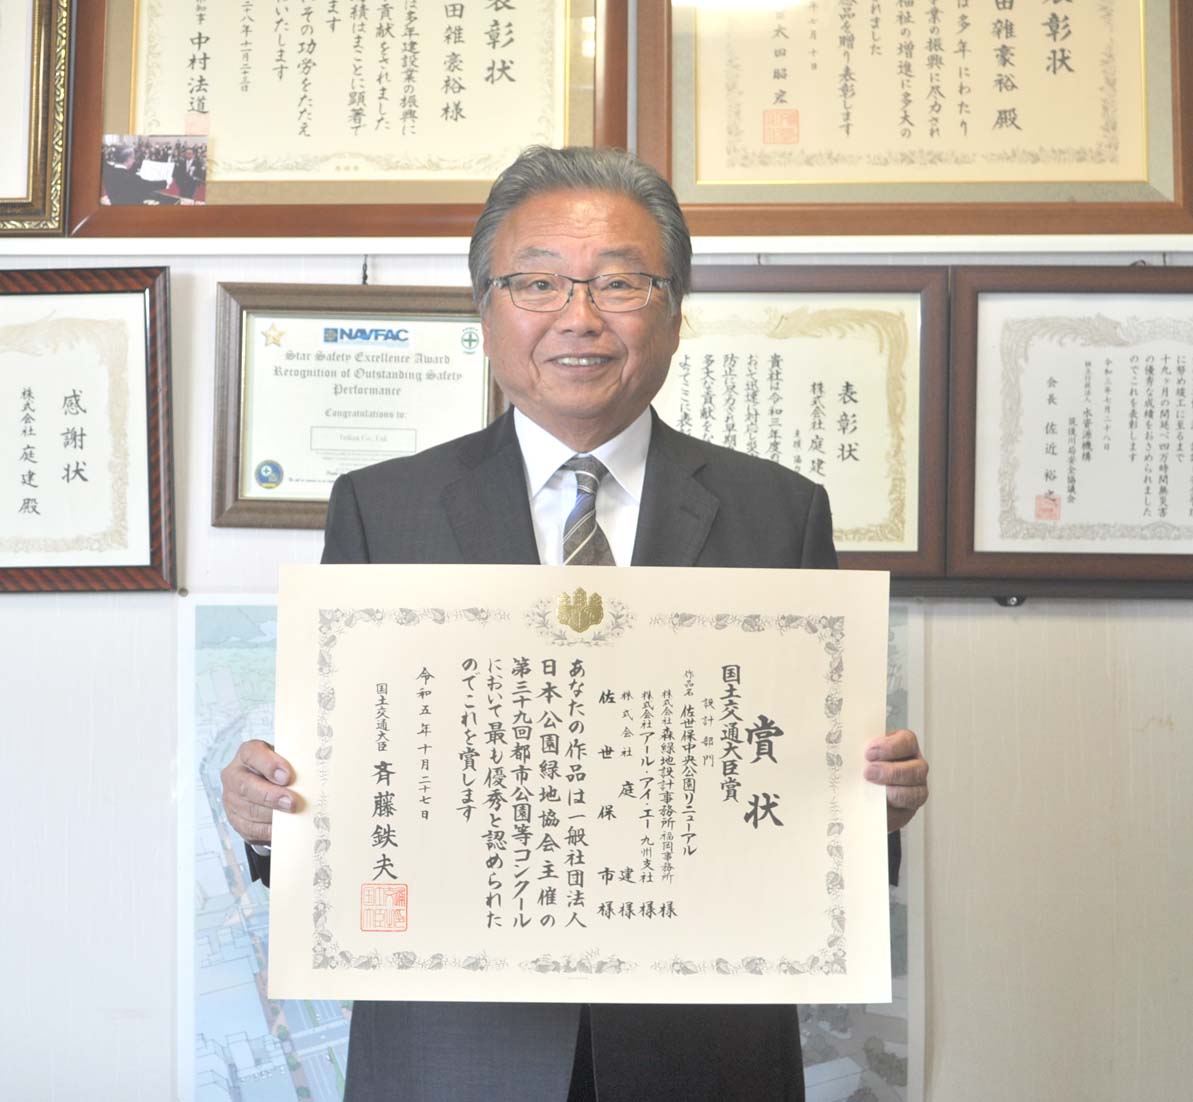 表彰状
田雑豪裕様
は多年建設業の振興に
貢献をされました
績はまことに顕著で
ます
にその功労をたたえ
いたします
二十八年十一月二十三日
中村法道
表彰状
田雑豪裕殿
は多年にわたり
業の振興に尽力され
福祉の増進に多大の
されました
感品を贈り表彰します
年七月十日
太田昭宏
感謝状
株式会社庭建殿
NAVFAC
Star Safety Excellence Award
Recognition of Outstanding Safety
Performance
Congratulations to:
Teiken Co., Ltd.
表彰状
株式会社庭建
貴社は令和三年度の
おいて迅速に対応し災
防止に尽力され早期
多大な貢献をな
よってここに表彰
に努め竣工に至るまで
十九ヶ月の間延べ四万時間無災害
の優秀な成績をおさめられました
のでこれを表彰します
令和三年七月二十八日
独立行政法人水資源機構
筑後川局安全協議会
会長佐近裕之
賞状
国土交通大臣賞
設計部門
作品名 佐世保中央公園リニューアル
株式会社森緑地設計事務所福岡事務所様
株式会社アール・アイ・エー九州支社様
株式会社庭建様
佐世保市様
あなたの作品は一般社団法人
日本公園緑地協会主催の
第三十九回都市公園等コンクール
において最も優秀と認められた
のでこれを賞します
令和五年十月二十七日
国土交通大臣 斉藤鉄夫